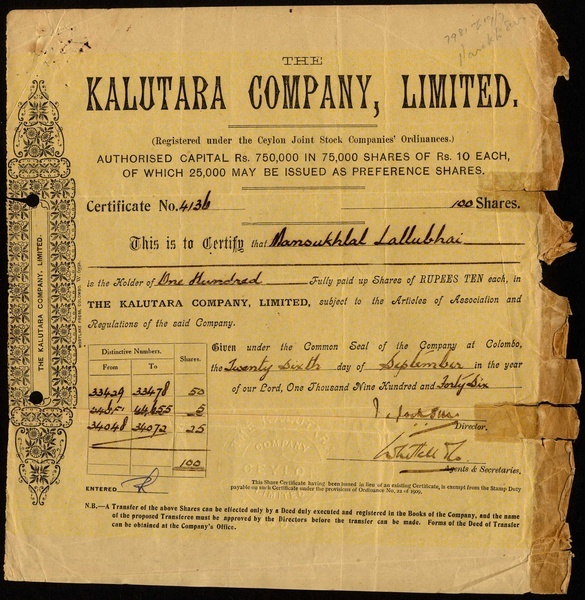 THE
KALUTARA COMPANY, LIMITED.
(Registered under the Ceylon Joint Stock Companies' Ordinances.)
AUTHORISED CAPITAL Rs. 750,000 IN 75,000 SHARES OF Rs. 10 EACH,
OF WHICH 25,000 MAY BE ISSUED AS PREFERENCE SHARES.
Certificate No. 4136 100 Shares.
This is to Certify that Mansukhlal Lallubhai
is the Holder of One Hundred Fully paid up Shares of RUPEES TEN each, in
THE KALUTARA COMPANY, LIMITED, subject to the Articles of Association and
Regulations of the said Company.
Distinctive Numbers. Shares.
From To
33429 33478 50
34048 34072 25
100
Given under the Common Seal of the Company at Colombo,
the Twenty Sixth day of September in the year
of our Lord, One Thousand Nine Hundred and Forty Six
Director.
Agents & Secretaries.
This Share Certificate having been issued in lieu of an existing Certificate, is exempt from the Stamp Duty
payable on such Certificate under the provisions of Ordinance No. 22 of 1909.
ENTERED
N.B.—A Transfer of the above Shares can be effected only by a Deed duly executed and registered in the Books of the Company, and the name
of the proposed Transferee must be approved by the Directors before the transfer can be made. Forms of the Deed of Transfer
can be obtained at the Company's Office.
THE KALUTARA COMPANY, LIMITED.